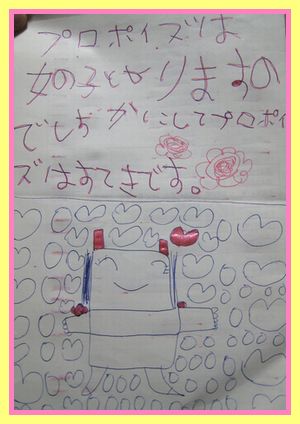 プロポイズは
女の子とかりますの
でしぢかにしてプロポイ
ズはすてきです。